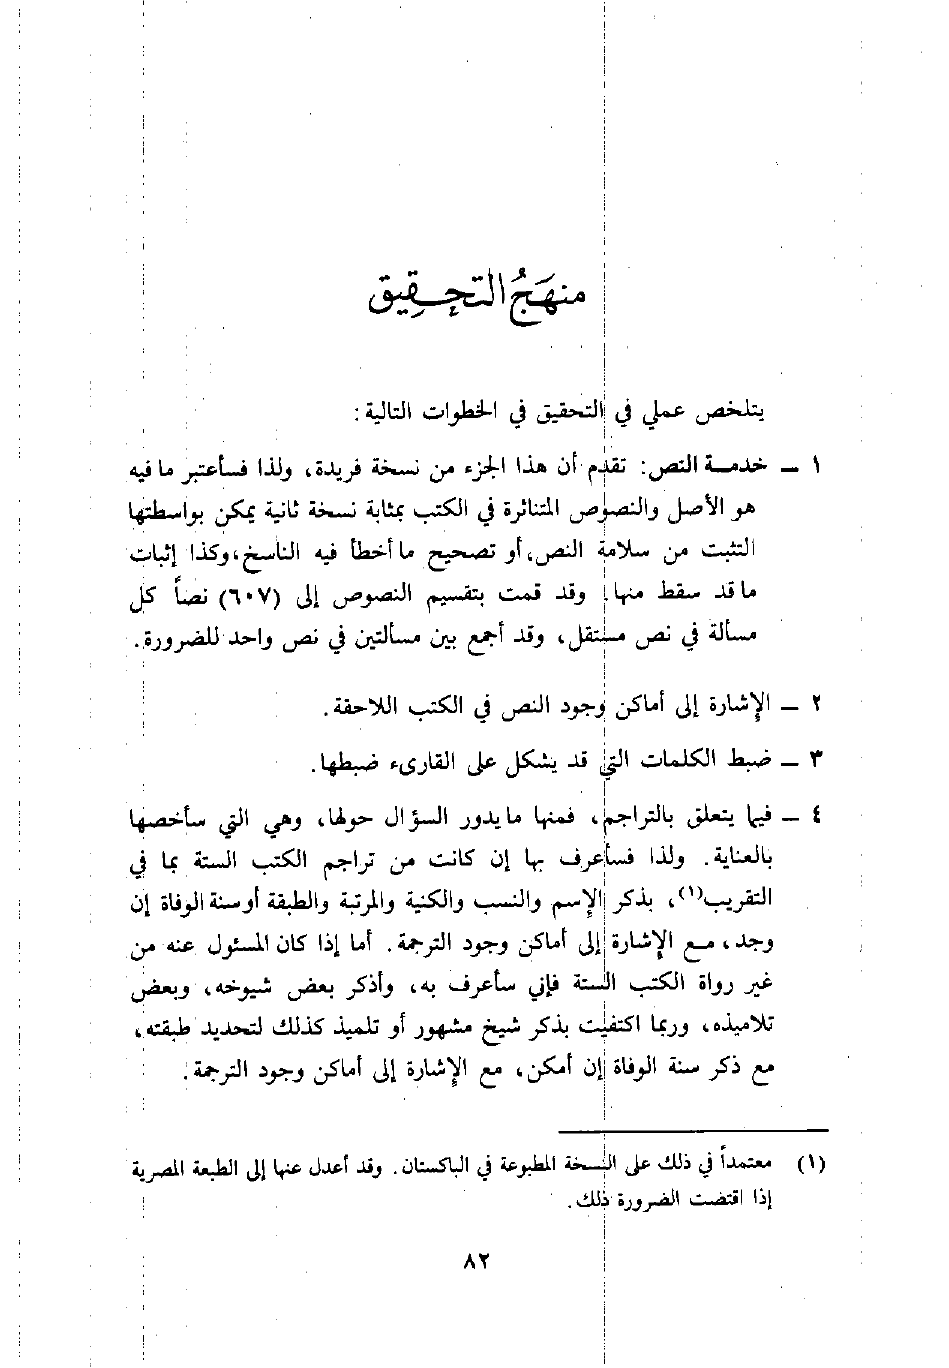 منهَجُ التحقِيق
يتلخص عملي في التحقيق في الخطوات التالية :
١ ــ خدمــة النص: تقدم أن هذا الجزء من نسخة فريدة، ولذا فسأعتبر ما فيه
هو الأصل والنصوص المتناثرة في الكتب بمثابة نسخة ثانية يمكن بواسطتها
التثبت من سلامة النص، أو تصحيح ما أخطأ فيه الناسخ، وكذا إثبات
ما قد سقط منها. وقد قمت بتقسيم النصوص إلى (٦٠٧) نصاً كل
مسألة في نص مستقل، وقد أجمع بين مسألتين في نص واحد للضرورة.
٢ ــ الإشارة إلى أماكن وجود النص في الكتب اللاحقة.
٣ ــ ضبط الكلمات التي قد يشكل على القارىء ضبطها.
٤ ــ فيما يتعلق بالتراجم، فمنها ما يدور السؤال حولها، وهي التي سأخصها
بالعناية. ولذا فسأعرف بها إن كانت من تراجم الكتب الستة بما في
التقريب(١)، بذكر الإسم والنسب والكنية والمرتبة والطبقة أو سنة الوفاة إن
وجد، مــع الإشارة إلى أماكن وجود الترجمة. أما إذا كان المسئول عنه من
غير رواة الكتب الستة فإني سأعرف به، وأذكر بعض شيوخه، وبعض
تلاميذه، وربما اكتفيت بذكر شيخ مشهور أو تلميذ كذلك لتحديد طبقته،
مع ذكر سنة الوفاة إن أمكن، مع الإشارة إلى أماكن وجود الترجمة.
(١) معتمداً في ذلك على النسخة المطبوعة في الباكستان. وقد أعدل عنها إلى الطبعة المصرية
إذا اقتضت الضرورة ذلك.
٨٢